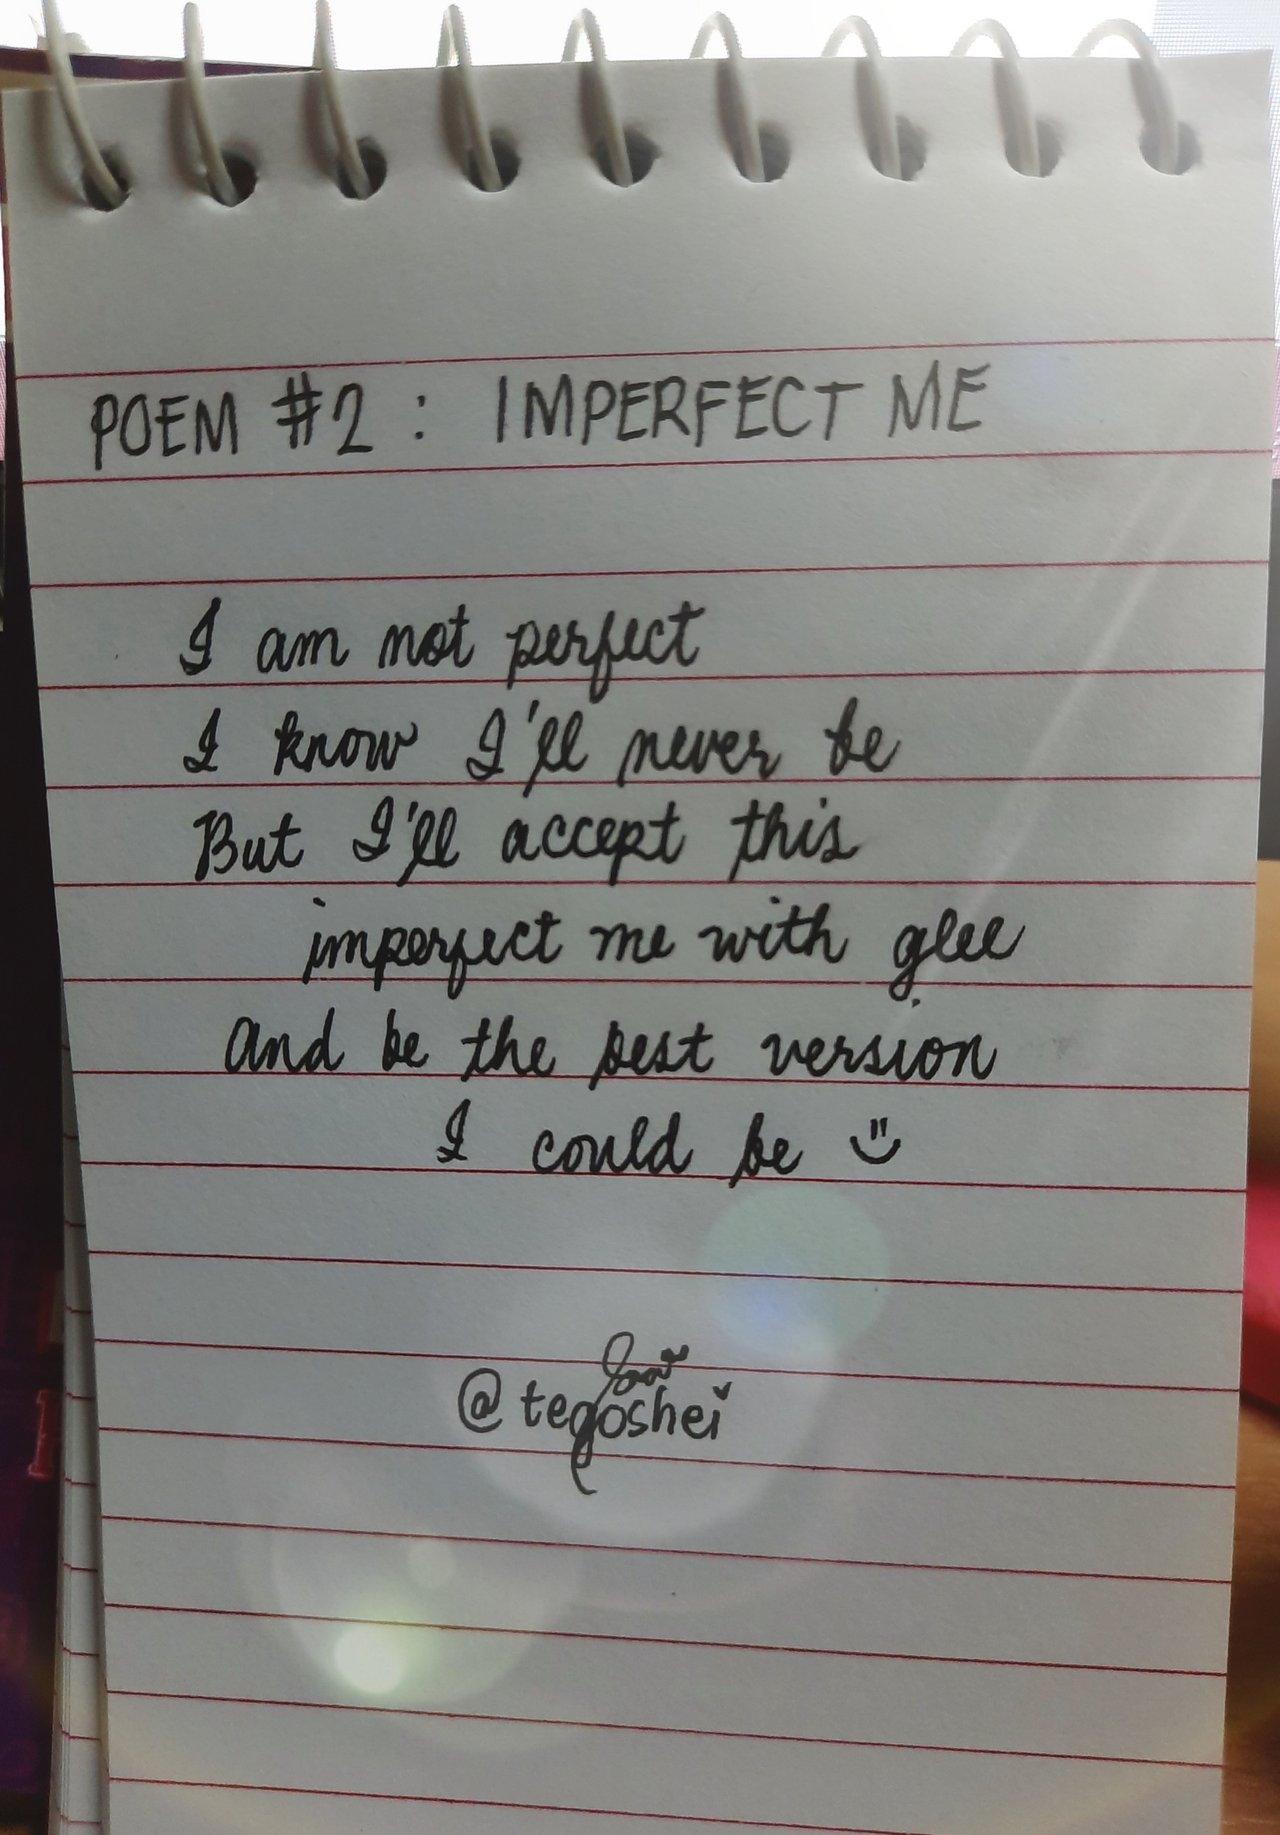 POEM #2 : IMPERFECT ME
I am not perfect
I know I'll never be
But I'll accept this
imperfect me with glee
And be the best version
I could be
@tegoshei